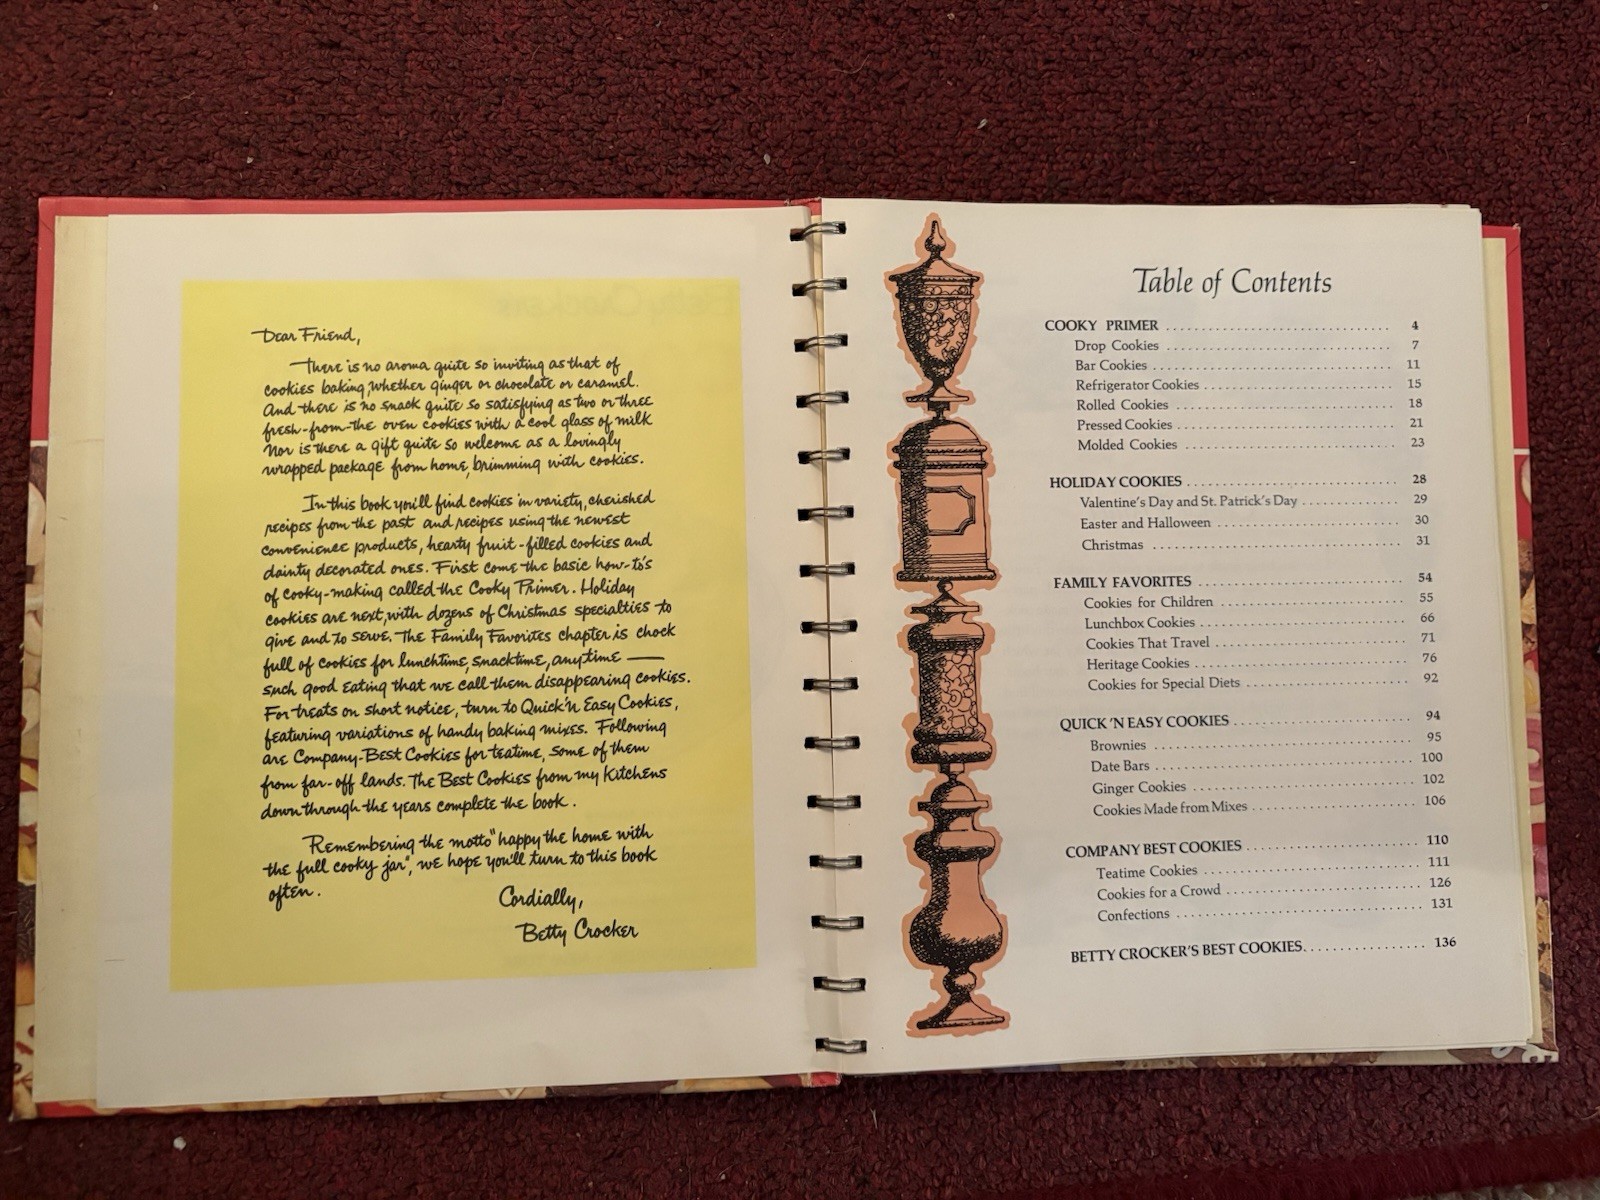 Dear Friend,
There is no aroma quite so inviting as that of
cookies baking, whether ginger or chocolate or caramel.
And there is no snack quite so satisfying as two or three
fresh-from-the oven cookies with a cool glass of milk
Nor is there a gift quite so welcome as a lovingly
wrapped package from home, brimming with cookies.
In this book you'll find cookies in variety, cherished
recipes from the past and recipes using the newest
convenience products, hearty fruit-filled cookies and
dainty decorated ones. First come the basic how-to's
of cooky-making called the Cooky Primer. Holiday
cookies are next, with dozens of Christmas specialties to
give and to serve. The Family Favorites chapter is chock
full of cookies for lunchtime, snacktime, anytime —
such good eating that we call them disappearing cookies.
For treats on short notice, turn to Quick'n Easy Cookies,
featuring variations of handy baking mixes. Following
are Company-Best Cookies for teatime, some of them
from far-off lands. The Best Cookies from my Kitchens
down through the years complete the book.
Remembering the motto "happy the home with
the full cooky jar", we hope you'll turn to this book
often.
Cordially,
Betty Crocker
Table of Contents
COOKY PRIMER . . . . . . . . . . 4
Drop Cookies . . . . . . . . . . 7
Bar Cookies . . . . . . . . . . 11
Refrigerator Cookies . . . . . . . . . . 15
Rolled Cookies . . . . . . . . . . 18
Pressed Cookies . . . . . . . . . . 21
Molded Cookies . . . . . . . . . . 23
HOLIDAY COOKIES . . . . . . . . . . 28
Valentine's Day and St. Patrick's Day . . . . . . . . . . 29
Easter and Halloween . . . . . . . . . . 30
Christmas . . . . . . . . . . 31
FAMILY FAVORITES . . . . . . . . . . 54
Cookies for Children . . . . . . . . . . 55
Lunchbox Cookies . . . . . . . . . . 66
Cookies That Travel . . . . . . . . . . 71
Heritage Cookies . . . . . . . . . . 76
Cookies for Special Diets . . . . . . . . . . 92
QUICK 'N EASY COOKIES . . . . . . . . . . 94
Brownies . . . . . . . . . . 95
Date Bars . . . . . . . . . . 100
Ginger Cookies . . . . . . . . . . 102
Cookies Made from Mixes . . . . . . . . . . 106
COMPANY BEST COOKIES . . . . . . . . . . 110
Teatime Cookies . . . . . . . . . . 111
Cookies for a Crowd . . . . . . . . . . 126
Confections . . . . . . . . . . 131
BETTY CROCKER'S BEST COOKIES . . . . . . . . . . 136